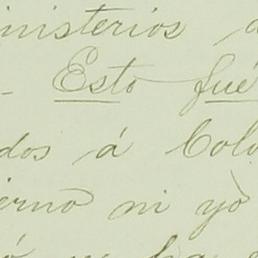 inisterios
- Esto fué
dos á Colo
ierno ni yo